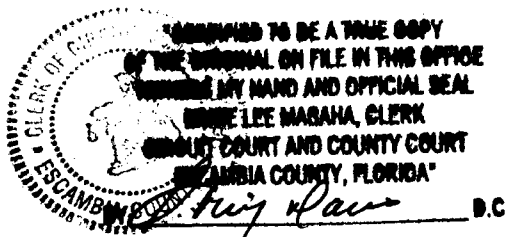 "CERTIFIED TO BE A TRUE COPY
OF THE ORIGINAL ON FILE IN THIS OFFICE
WITNESS MY HAND AND OFFICIAL SEAL
ERNIE LEE MAGAHA, CLERK
CIRCUIT COURT AND COUNTY COURT
ESCAMBIA COUNTY, FLORIDA"
BY D.C
CLERK OF
ESCAMBIA